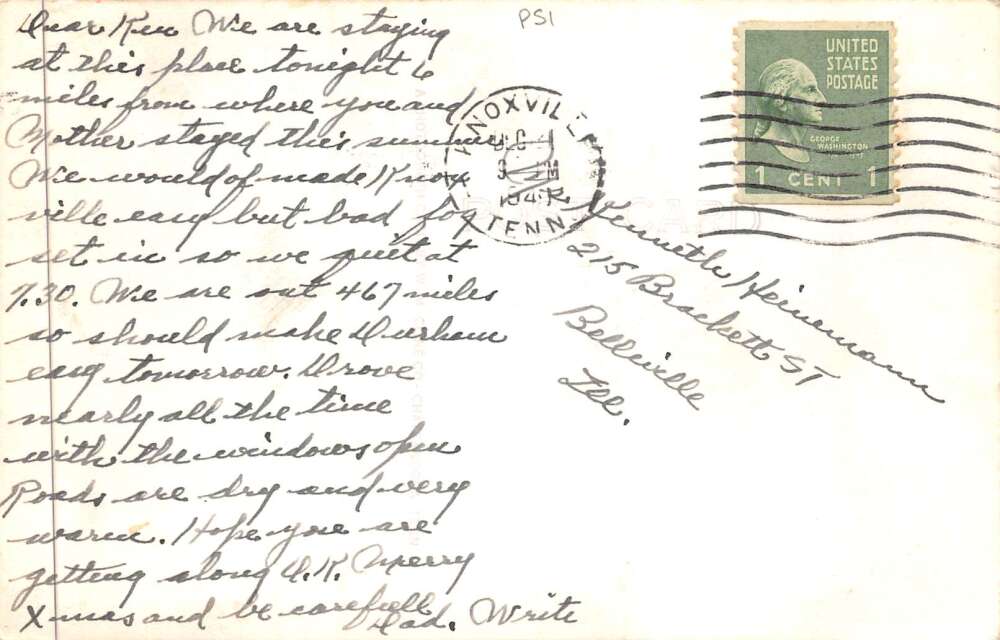 PS1
Dear Ken We are staying
at this place tonight 6
miles from where you and
Mother stayed this summer
We would of made Knox
ville easy but bad fog
set in so we quit at
7.30. We are out 467 miles
so should make Durham
easy tomorrow. Drove
nearly all the time
with the windows open
Roads are dry and very
warm. Hope you are
getting along O.K. Merry
X-mas and be carefull
Dad. Write
KNOXVILLE
DEC
TENN.
UNITED
STATES
POSTAGE
GEORGE
WASHINGTON
1 CENT 1
Kenneth Heinemann
215 Brackett ST
Belleville
Ill.